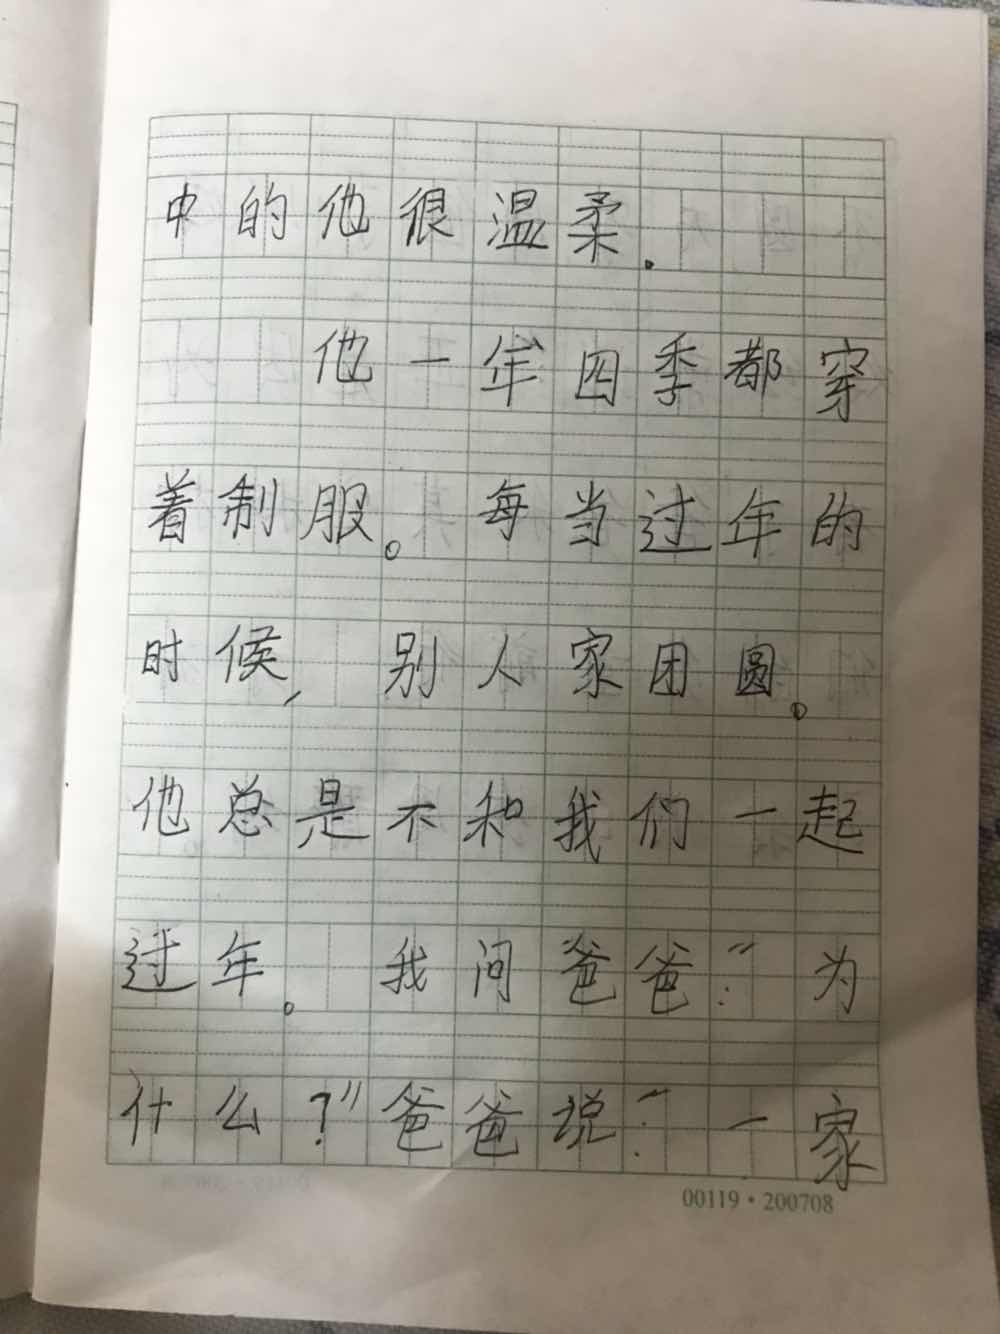 中的他很温柔。
他一年四季都穿
着制服。每当过年的
时候,别人家团圆。
他总是不和我们一起
过年。我问爸爸:“为
什么?”爸爸说:“一家
00119·200708